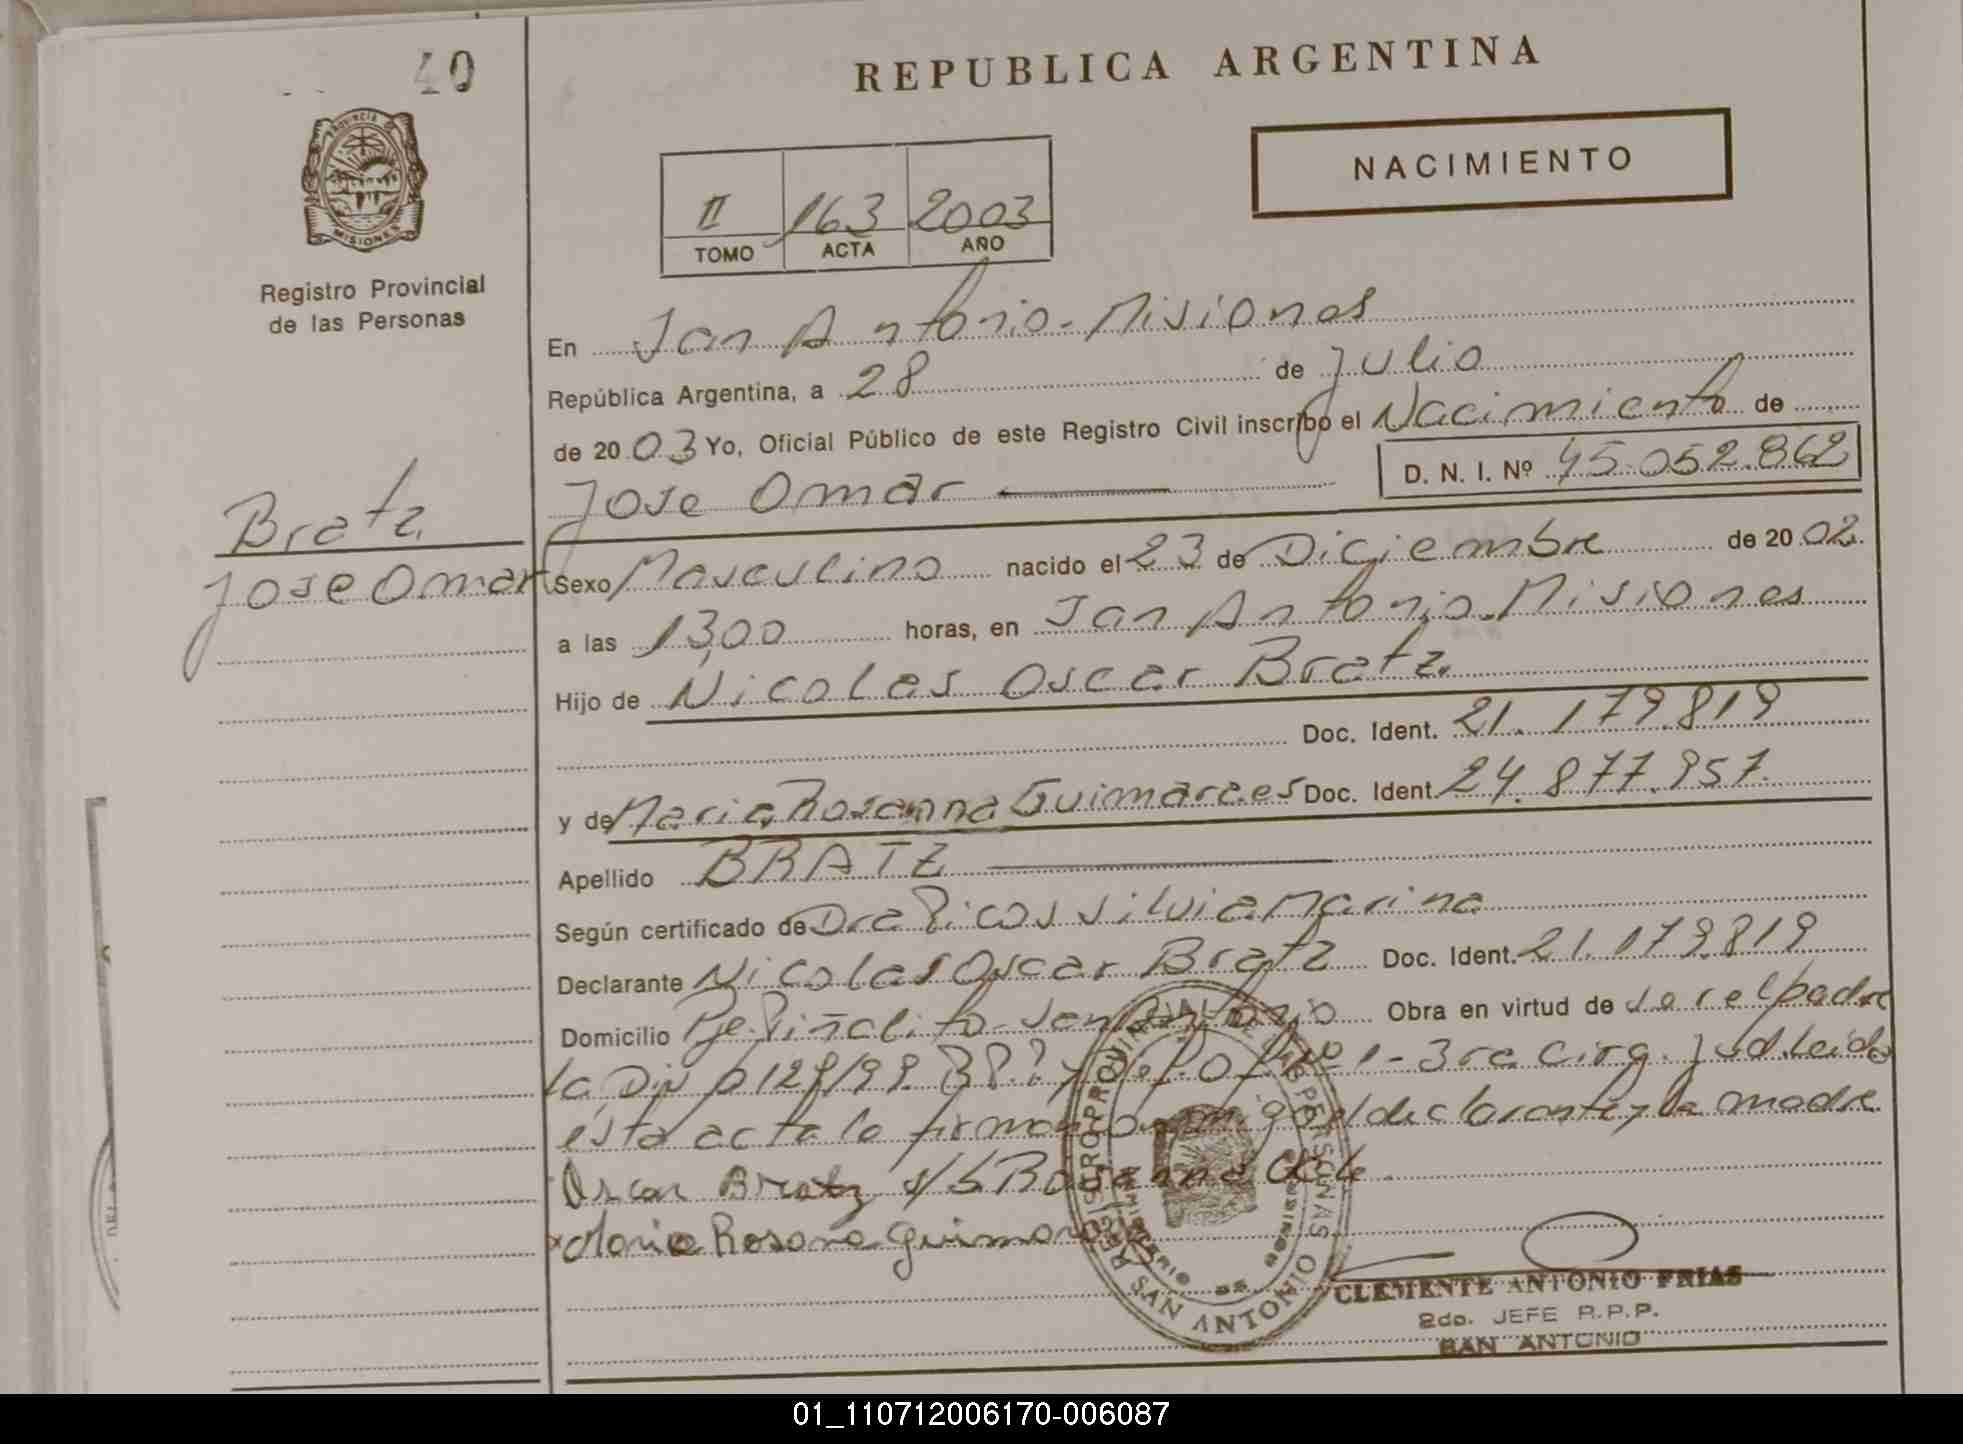 40
REPUBLICA ARGENTINA
PROVINCIA DE
MISIONES
NACIMIENTO
II 163 2003
TOMO ACTA AÑO
Registro Provincial
de las Personas
En San Antonio - Misiones
República Argentina, a 28 de Julio
de 2003 Yo, Oficial Público de este Registro Civil inscribo el Nacimiento de
Jose Omar D. N. I. Nº 45.052.862
Bratz
Jose Omar
Sexo Masculino nacido el 23 de Diciembre de 2002
a las 13,00 horas, en San Antonio. Misiones
Hijo de Nicolas Oscar Bratz.
Doc. Ident. 21.179.819
y de Maria Rosanna Guimaraes Doc. Ident. 24.877.957.
Apellido BRATZ
Según certificado de Dra Picos Silvia Marina
Declarante Nicolas Oscar Bratz Doc. Ident. 21.179.819
Domicilio Pje Piñalito - San Antonio Obra en virtud de ser el padre
la Dip 128/99. Nº 1 - 3ra Circ. Jud. Leida
esta acta la firman conmigo el declarante y la madre
Oscar Bratz s/S Rosanna
Maria Rosana Guimaraes
REGISTRO PROVINCIAL DE LAS PERSONAS
MINISTERIO DE GOBIERNO
SAN ANTONIO
CLEMENTE ANTONIO FRIAS
2do. JEFE R.P.P.
SAN ANTONIO
01_110712006170-006087